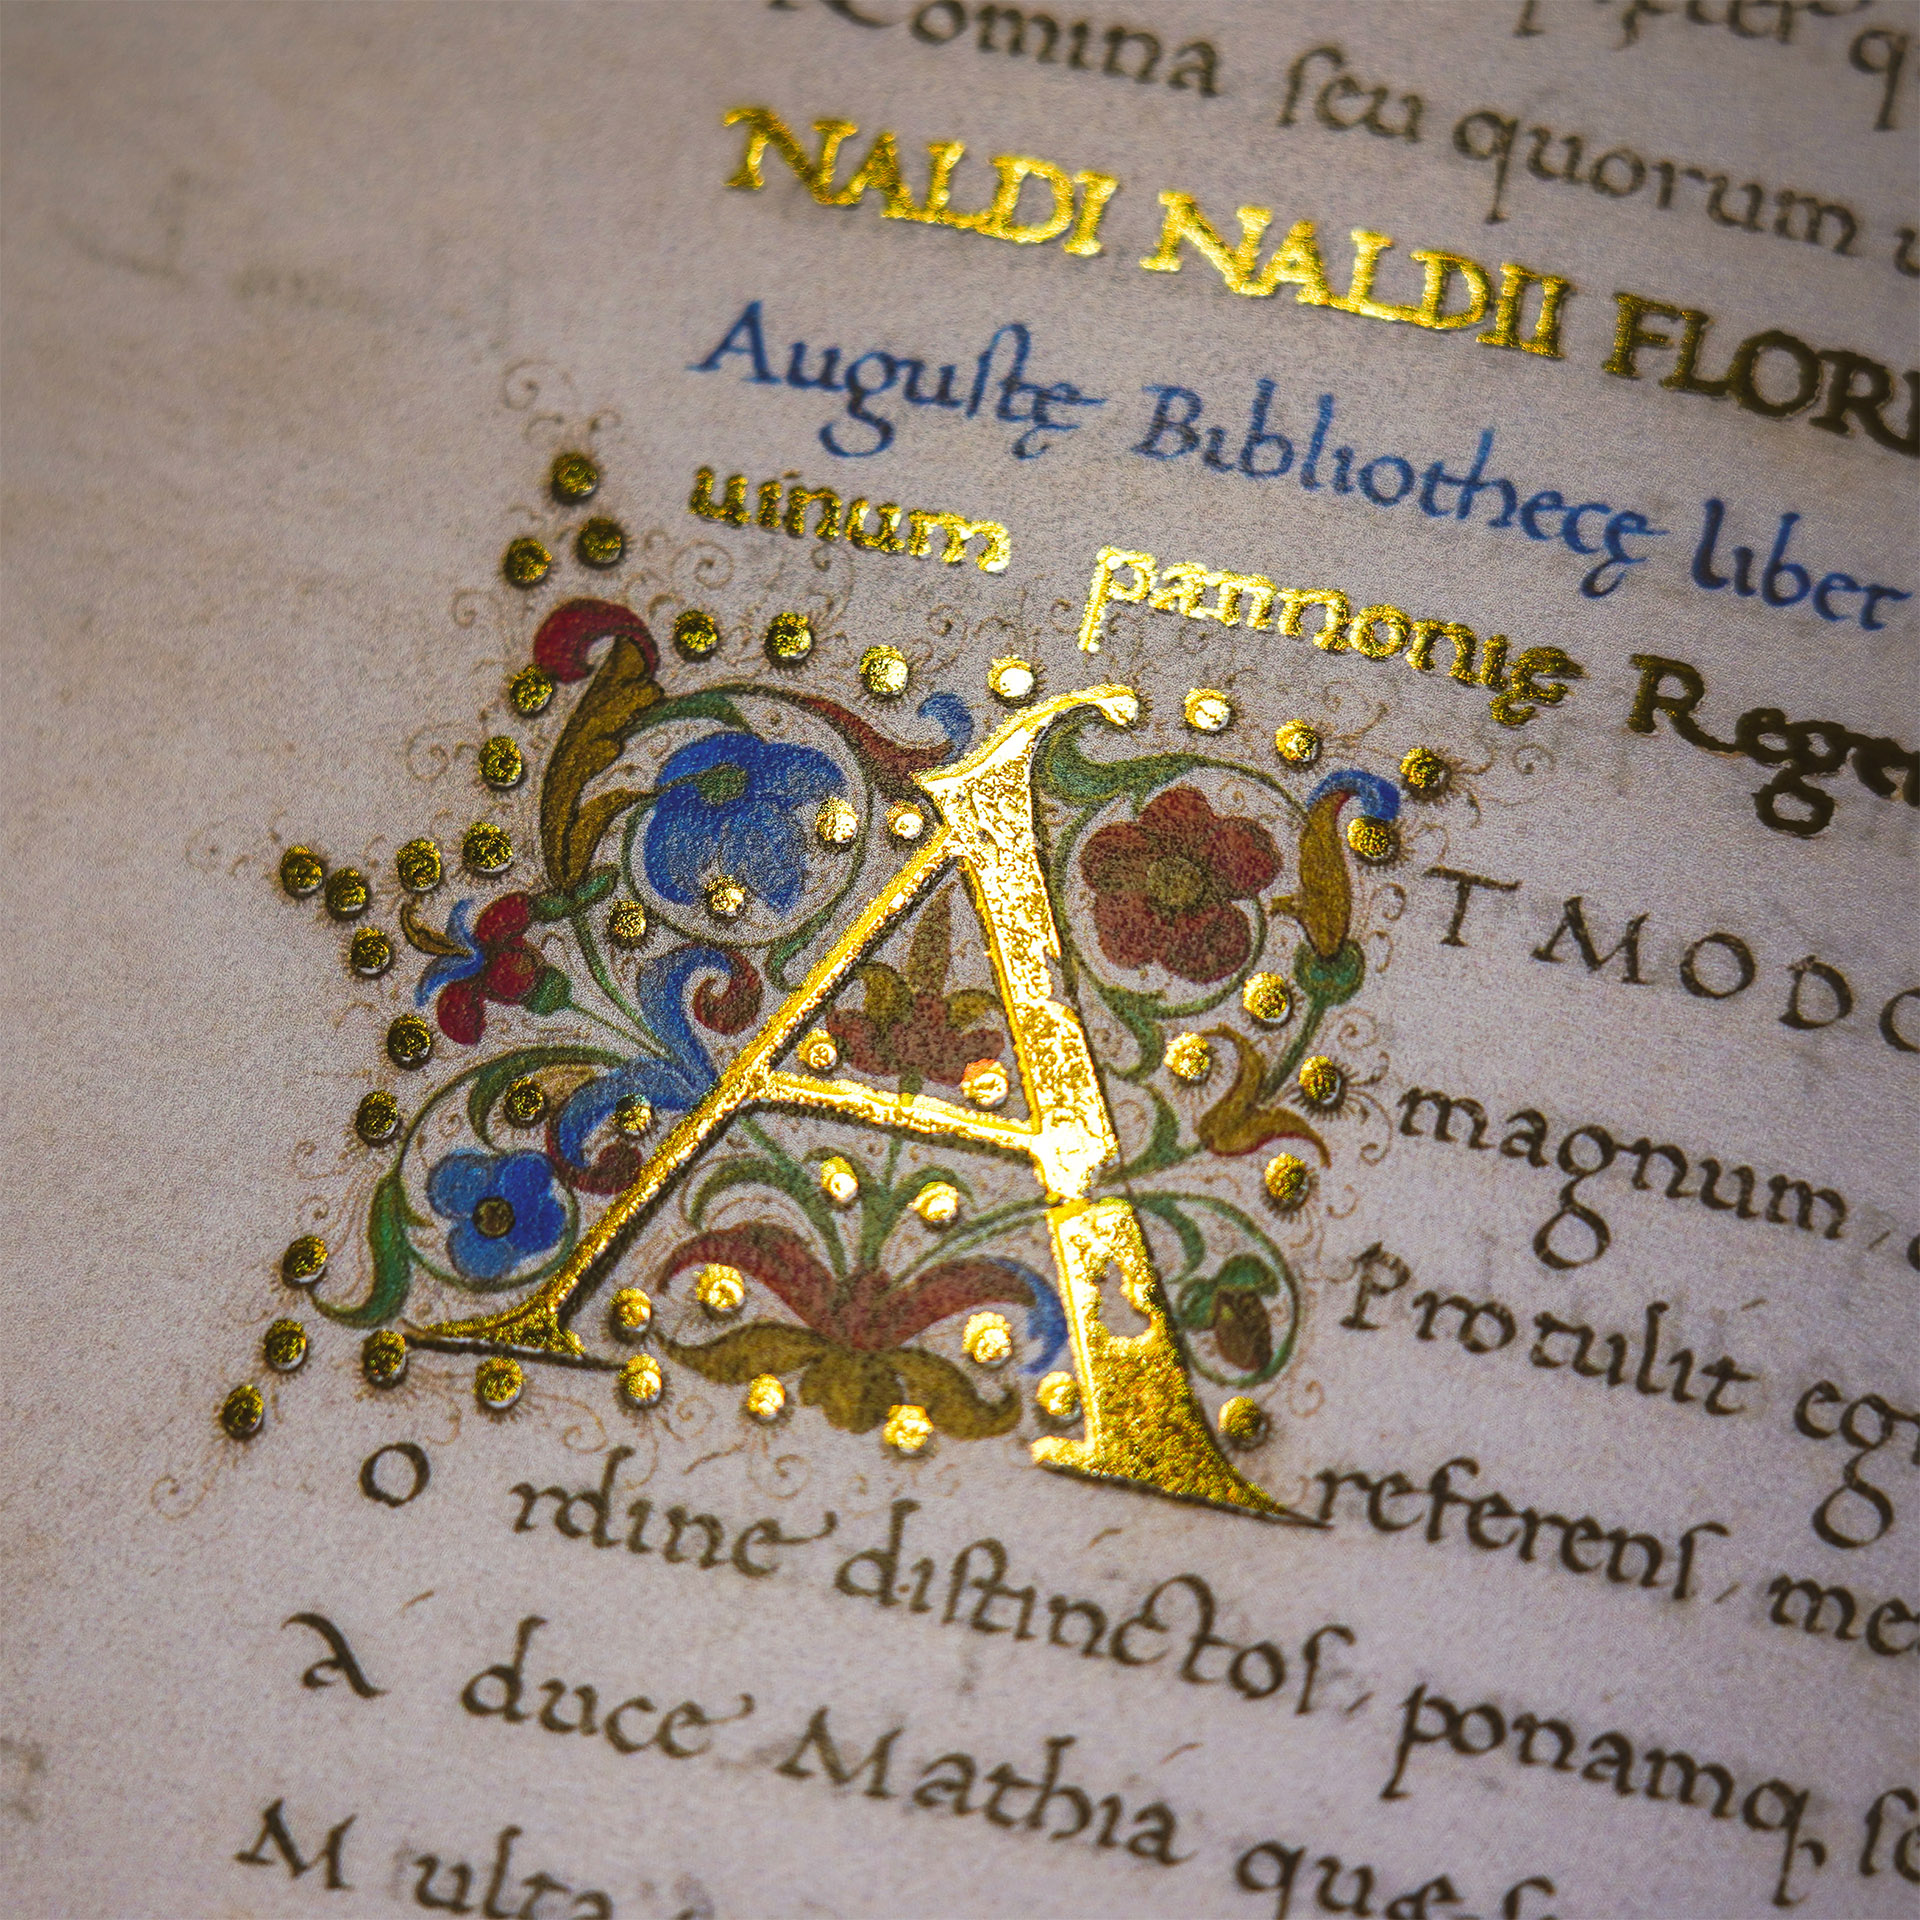 Comina ſeu quorum
NALDI NALDII FLORE
Auguſtę Bibliothecę liber
uinum pannonię Regem
AT MODO
magnum,
Protulit
referenſ, me
o rdine diſtinctoſ, ponamq
A duce Mathia quæ
M ulta